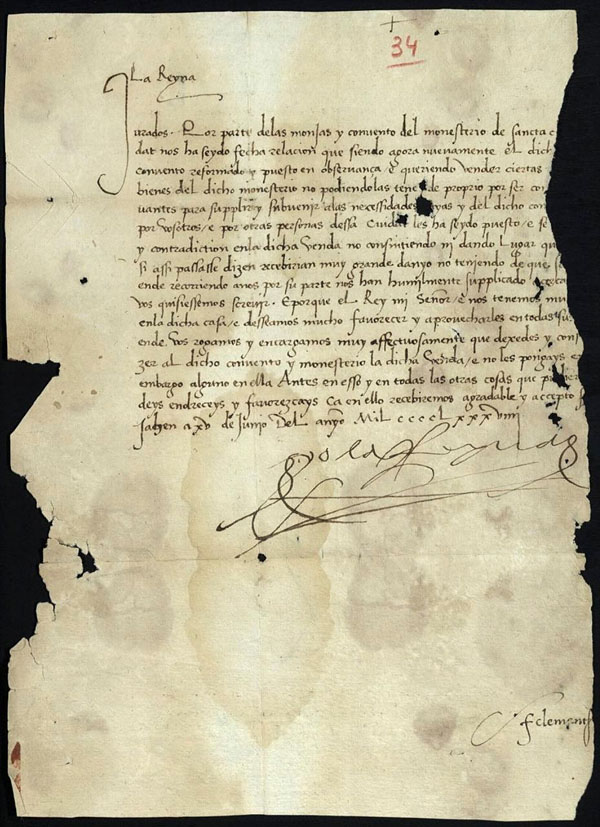 34
La Reyna
Jurados. Por parte delas monjas y convento del monesterio de sancta c
dat nos ha seydo fecha relacion que siendo agora nuevamente el dich
convento reformado y puesto en observança / e queriendo vender ciertas
bienes del dicho monesterio no podiendolas tene de proprio por ser con
uantes para supplir y subvenir alas necessidades suyas y del dicho con
por vosotros / e por otras personas dessa Ciudat les ha seydo puesto / e fe
y contradiction enla dicha venda no consintiendo ni dando lugar que
si assi passasse dizen recebirian muy grande danyo no teniendo de que
ende recorriendo anos por su parte nos han humilmente supplicado acerca
vos quisiessemos screuir. E porque el Rey mi Señor / e nos tenemos mu
enla dicha casa / e desseamos mucho favorecer y aprovecharles en todas su
ende vos rogamos y encargamos muy affectuosamente que dexedes y cons
zer al dicho convento y monesterio la dicha venda / e no les pongays
embargo alguno en ella Antes en esso y en todas las otras cosas que
deys endreceys y favorezcays Ca en ello recebiremos agradable y accepto s
Jahen a xv de Junio Del anyo Mil cccc L xxx viiii
yo la Reyna
f clement